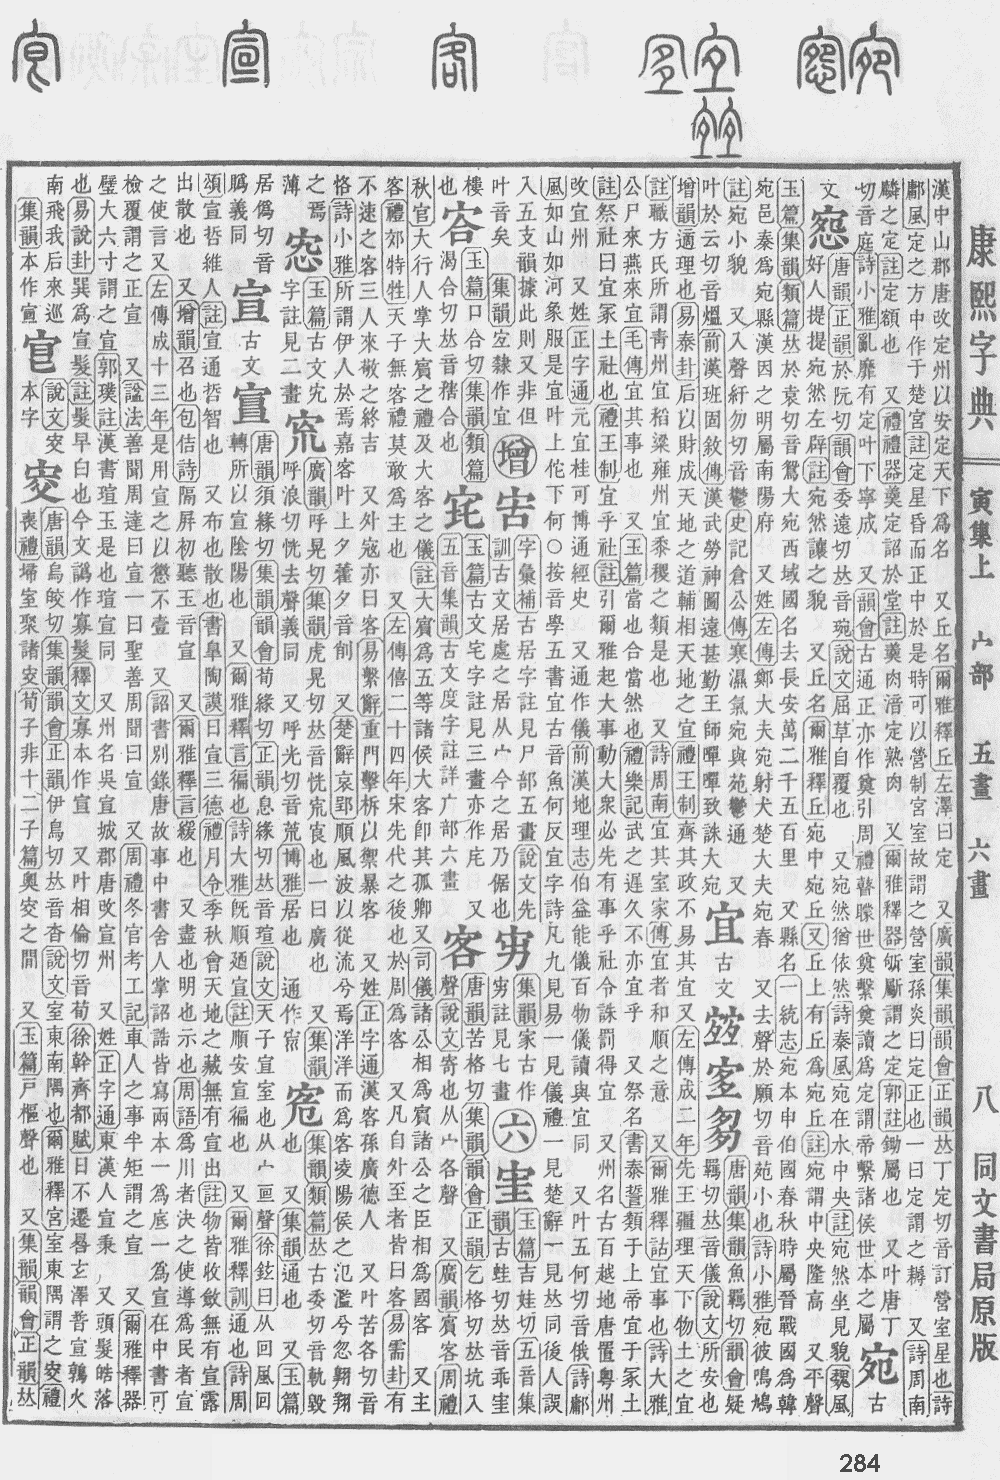 康熙字典 寅集上 宀部 五畫 六畫 八 同文書局原版
漢中山郡唐改定州以安定天下爲名 又丘名爾雅釋丘左澤曰定 又廣韻集韻韻會正韻𠀤丁定切音訂營室星也詩
鄘風定之方中作于楚宮註定星昏而正中於是時可以營制宮室故謂之營室孫炎曰定正也 一曰定謂之耨 又詩周南
麟之定註定額也 又禮禮器羹定詔於堂註羹肉湆定熟肉 又爾雅釋器斪斸謂之定郭註鋤屬也 又叶唐丁
切音庭詩小雅亂靡有定叶下寧成 又韻會古通正亦作奠引周禮瞽矇世奠繫奠讀爲定謂帝繫諸侯世本之屬
宛
古
文
惌
唐韻正韻於阮切韻會委遠切𠀤音琬說文屈草自覆也 又宛然猶依然詩秦風宛在水中央註宛然坐見貌魏風
好人提提宛然左辟註宛然讓之貌 又丘名爾雅釋丘宛中宛丘又丘上有丘爲宛丘註宛謂中央隆高 又平聲
玉篇集韻類篇𠀤於袁切音鴛大宛西域國名去長安萬二千五百里 又縣名一統志宛本申伯國春秋時屬晉戰國爲韓
宛邑秦爲宛縣漢因之明屬南陽府 又姓左傳鄭大夫宛射犬楚大夫宛春 又去聲於願切音苑小也詩小雅宛彼鳴鳩
註宛小貌 又入聲紆勿切音鬱史記倉公傳寒濕氣宛與苑鬱通 又
叶於云切音熅前漢班固敘傳漢武勞神圖遠甚勤王師驒驒致誅大宛
宜
古文
𡪀𡧪𡖖
唐韻集韻魚羈切韻會疑
羈切𠀤音儀說文所安也
增韻適理也易泰卦后以財成天地之道輔相天地之宜禮王制齊其政不易其宜 又左傳成二年先王疆理天下物土之宜
註職方氏所謂靑州宜稻梁雍州宜黍稷之類是也 又詩周南宜其室家傳宜者和順之意 又爾雅釋詁宜事也詩大雅
公尸來燕來宜毛傳宜其事也 又玉篇當也合當然也禮樂記武之遲久不亦宜乎 又祭名書泰誓類于上帝宜于冢土
註祭社曰宜冢土社也禮王制宜乎社註引爾雅起大事動大衆必先有事乎社令誅罰得宜 又州名古百越地唐置粵州
改宜州 又姓正字通元宜桂可博通經史 又通作儀前漢地理志伯益能儀百物儀讀與宜同 又叶五何切音俄詩鄘
風如山如河象服是宜叶上佗下何○按音學五書宜古音魚何反宜字詩凡九見易一見儀禮一見楚辭一見𠀤同後人誤
入五支韻據此則又非但
叶音矣 集韻宐隸作宜
增
𡧘
字彙補古居字註見尸部五畫說文先
訓古文居處之居从宀今之居乃倨也
𡧚
集韻家古作
𡧚註見七畫
六
𡧫
玉篇吉娃切五音集
韻古蛙切𠀤音乖𡧫
樓也
㝓
玉篇口合切集韻類篇
渴合切𠀤音㾑合也
𡧪
玉篇古文宅字註見三畫亦作㡯 又
五音集韻古文度字註詳广部六畫
客
唐韻苦格切集韻韻會正韻乞格切𠀤坑入
聲說文寄也从宀各聲 又廣韻賓客周禮
秋官大行人掌大賓之禮及大客之儀註大賓爲五等諸侯大客卽其孤卿又司儀諸公相爲賓諸公之臣相爲國客 又主
客禮郊特牲天子無客禮莫敢爲主也 又左傳僖二十四年宋先代之後也於周爲客 又凡自外至者皆曰客易需卦有
不速之客三人來敬之終吉 又外寇亦曰客易繫辭重門擊柝以禦暴客 又姓正字通漢客孫廣德人 又叶苦各切音
恪詩小雅所謂伊人於焉嘉客叶上夕藿夕音削 又楚辭哀郢順風波以從流兮焉洋洋而爲客凌陽侯之氾濫兮忽翶翔
之焉
薄
𡧬
玉篇古文宄
字註見二畫
㝃
廣韻呼晃切集韻虎晃切𠀤音怳㝃㝗也一曰廣也 又集韻
呼浪切㤺去聲義同 又呼光切音荒博雅居也 通作巟
㝌
集韻類篇𠀤古委切音軌毀
也 又集韻通也 又玉篇
居僞切音
䧦義同
宣
古文
𡩬
唐韻須緣切集韻韻會荀緣切正韻息緣切𠀤音瑄說文天子宣室也从宀亘聲徐鉉曰从回風回
轉所以宣陰陽也 又爾雅釋言徧也詩大雅旣順廼宣註順安宣徧也 又爾雅釋訓通也詩周
頌宣哲維人註宣通哲智也 又布也散也書臯陶謨日宣三德禮月令季秋會天地之藏無有宣出註物皆收斂無有宣露
出散也 又增韻召也包佶詩隔屛初聽玉音宣 又爾雅釋言緩也 又盡也明也示也周語爲川者決之使導爲民者宣
之使言又左傳成十三年是用宣之以懲不壹 又詔書別錄唐故事中書舍人掌詔誥皆寫兩本一爲底一爲宣在中書可
檢覆謂之正宣 又諡法善聞周達曰宣一曰聖善周聞曰宣 又周禮冬官考工記車人之事半矩謂之宣 又爾雅釋器
璧大六寸謂之宣郭璞註漢書瑄玉是也瑄宣同 又州名吳宣城郡唐改宣州 又姓正字通東漢人宣秉 又頭髮皓落
也易說卦巽爲宣髮註髮早白也今文譌作寡髮釋文寡本作宣 又叶相倫切音荀徐幹齊都賦日不遷晷玄澤普宣鶉火
南飛我后來巡
集韻本作𡩡
𡧮
說文㝔
本字
㝔
唐韻烏皎切集韻韻會正韻伊鳥切𠀤音杳說文室東南隅也爾雅釋宮室東南隅謂之㝔禮
喪禮埽室聚諸㝔荀子非十二子篇奧㝔之閒 又玉篇戸樞聲也 又集韻韻會正韻𠀤
284